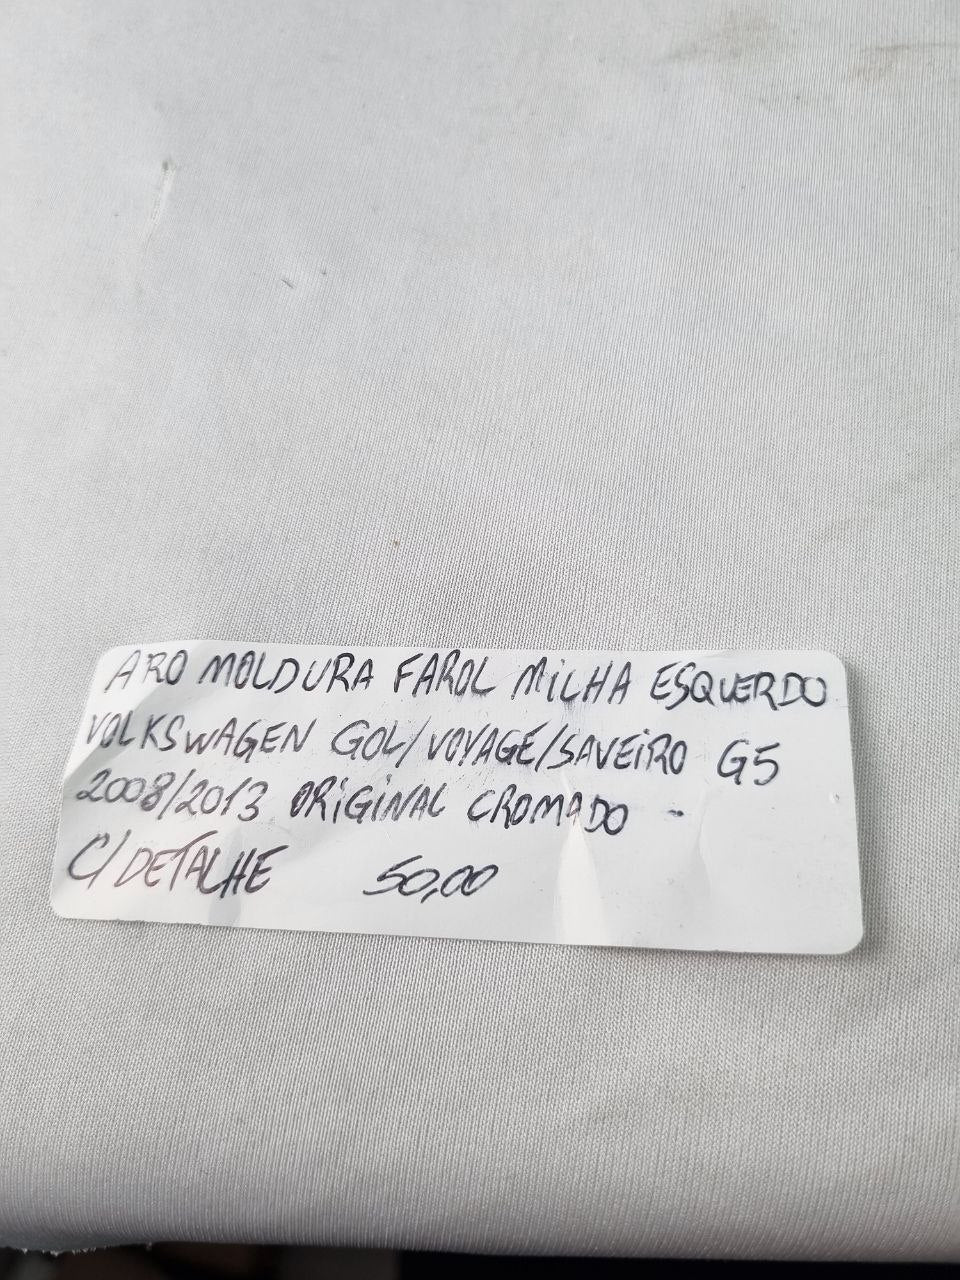 ARO MOLDURA FAROL MILHA ESQUERDO
VOLKSWAGEN GOL/VOYAGE/SAVEIRO G5
2008/2013 ORIGINAL CROMADO -
C/DETALHE 50,00